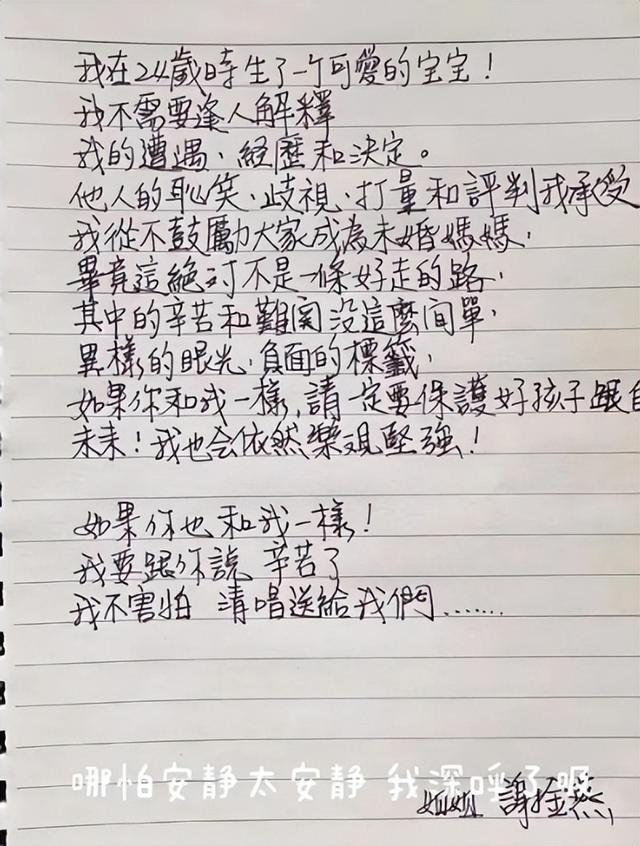 我在24歲時生了一个可愛的宝宝！
我不需要逢人解釋
我的遭遇、経歷和決定。
他人的恥笑、歧視、打量和評判我承受
我從不鼓勵大家成為未婚媽媽，
畢竟這絕对不是一條好走的路，
其中的辛苦和難関没這麼间單，
異樣的眼光、負面的標籤，
如果你和我一樣，請一定要保護好孩子跟自
未来！我也会依然樂观堅強！
如果你也和我一樣！
我要跟你說 辛苦了
我不害怕 清唱送給我們.......
哪怕安静太安静 我深呼了吸
姐姐 謝金燕